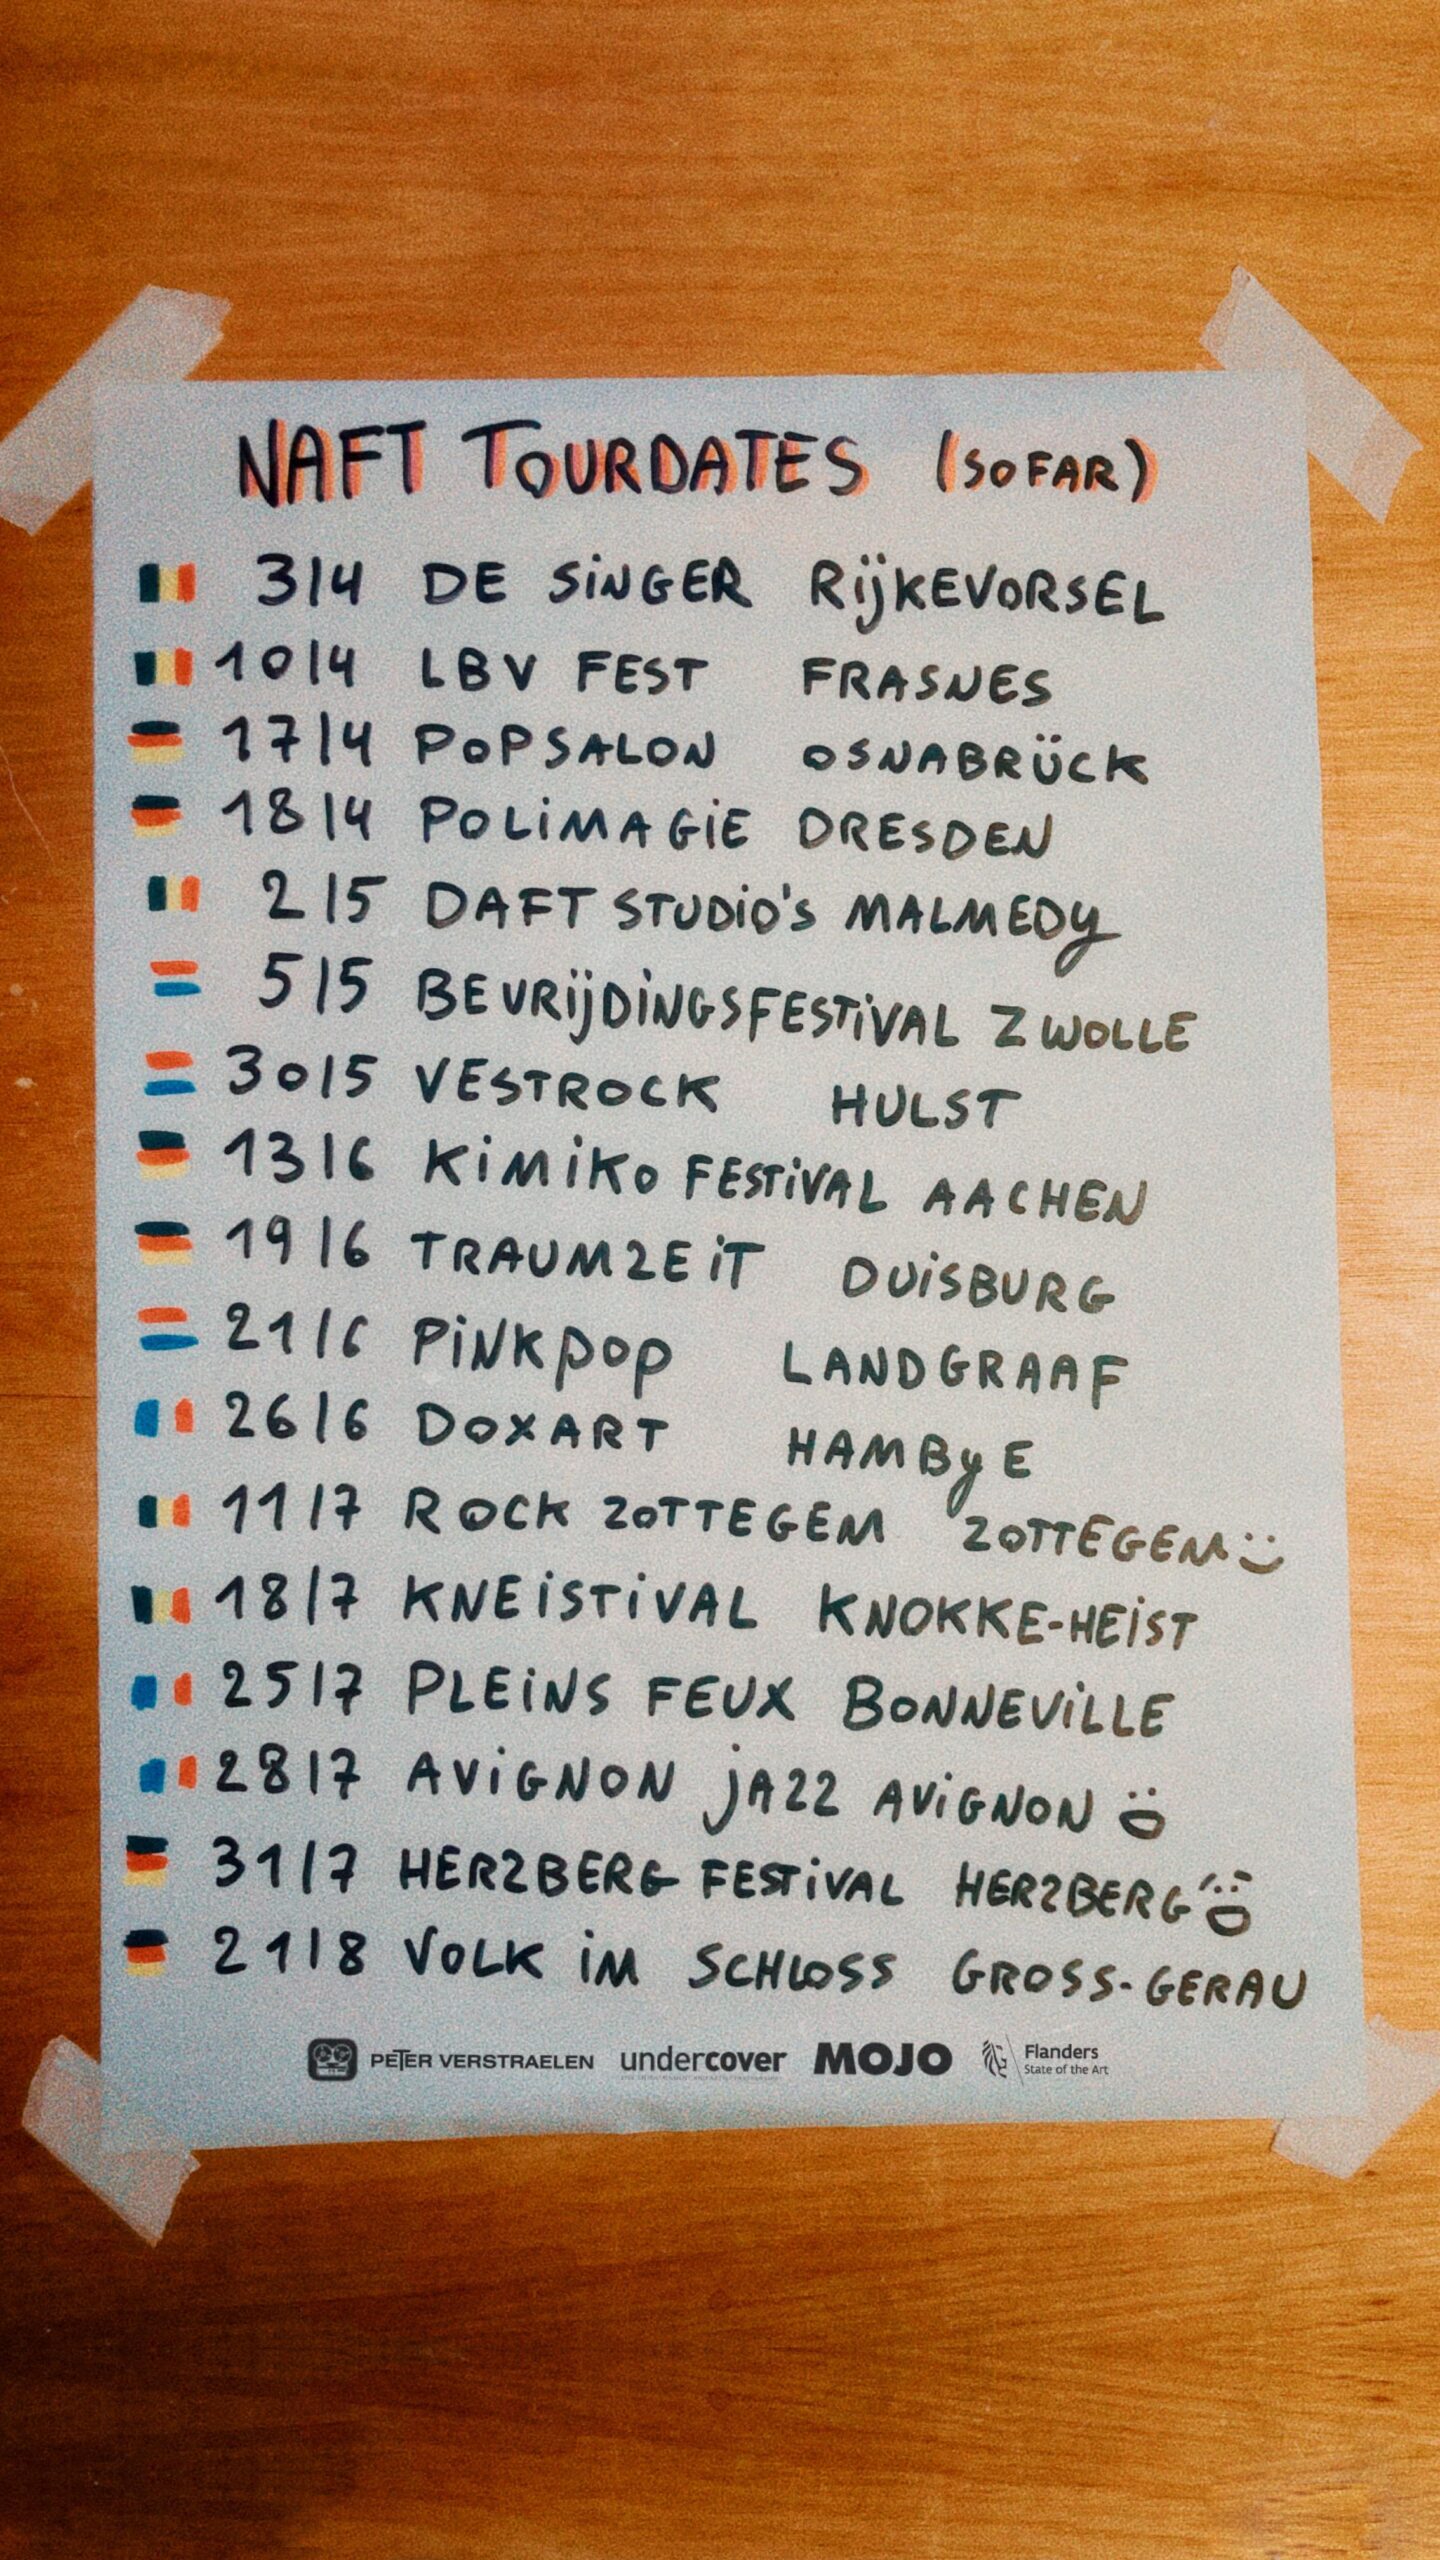 NAFT TOURDATES (SO FAR)
3/4 DE SiNGER RijKEVORSEL
10/4 LBV FEST FRASNES
17/4 POPSALON OSNABRÜCK
18/4 POLiMAGiE DRESDEN
2/5 DAFT STUDiO'S MALMEDy
5/5 BEVRijDiNGSFESTiVAL ZWOLLE
30/5 VESTROCK HULST
13/6 KiMiKO FESTiVAL AACHEN
19/6 TRAUMZEiT DUiSBURG
21/6 PiNKpop LANDGRAAF
26/6 DOXART HAMByE
11/7 ROCK ZOTTEGEM ZOTTEGEM
18/7 KNEiSTiVAL KNOKKE-HEiST
25/7 PLEiNS FEUX BONNEViLLE
28/7 AViGNON jAZZ AViGNON
31/7 HERZBERG FESTiVAL HERZBERG
21/8 VOLK iM SCHLOSS GROSS-GERAU
PETER VERSTRAELEN undercover MOJO Flanders
State of the Art